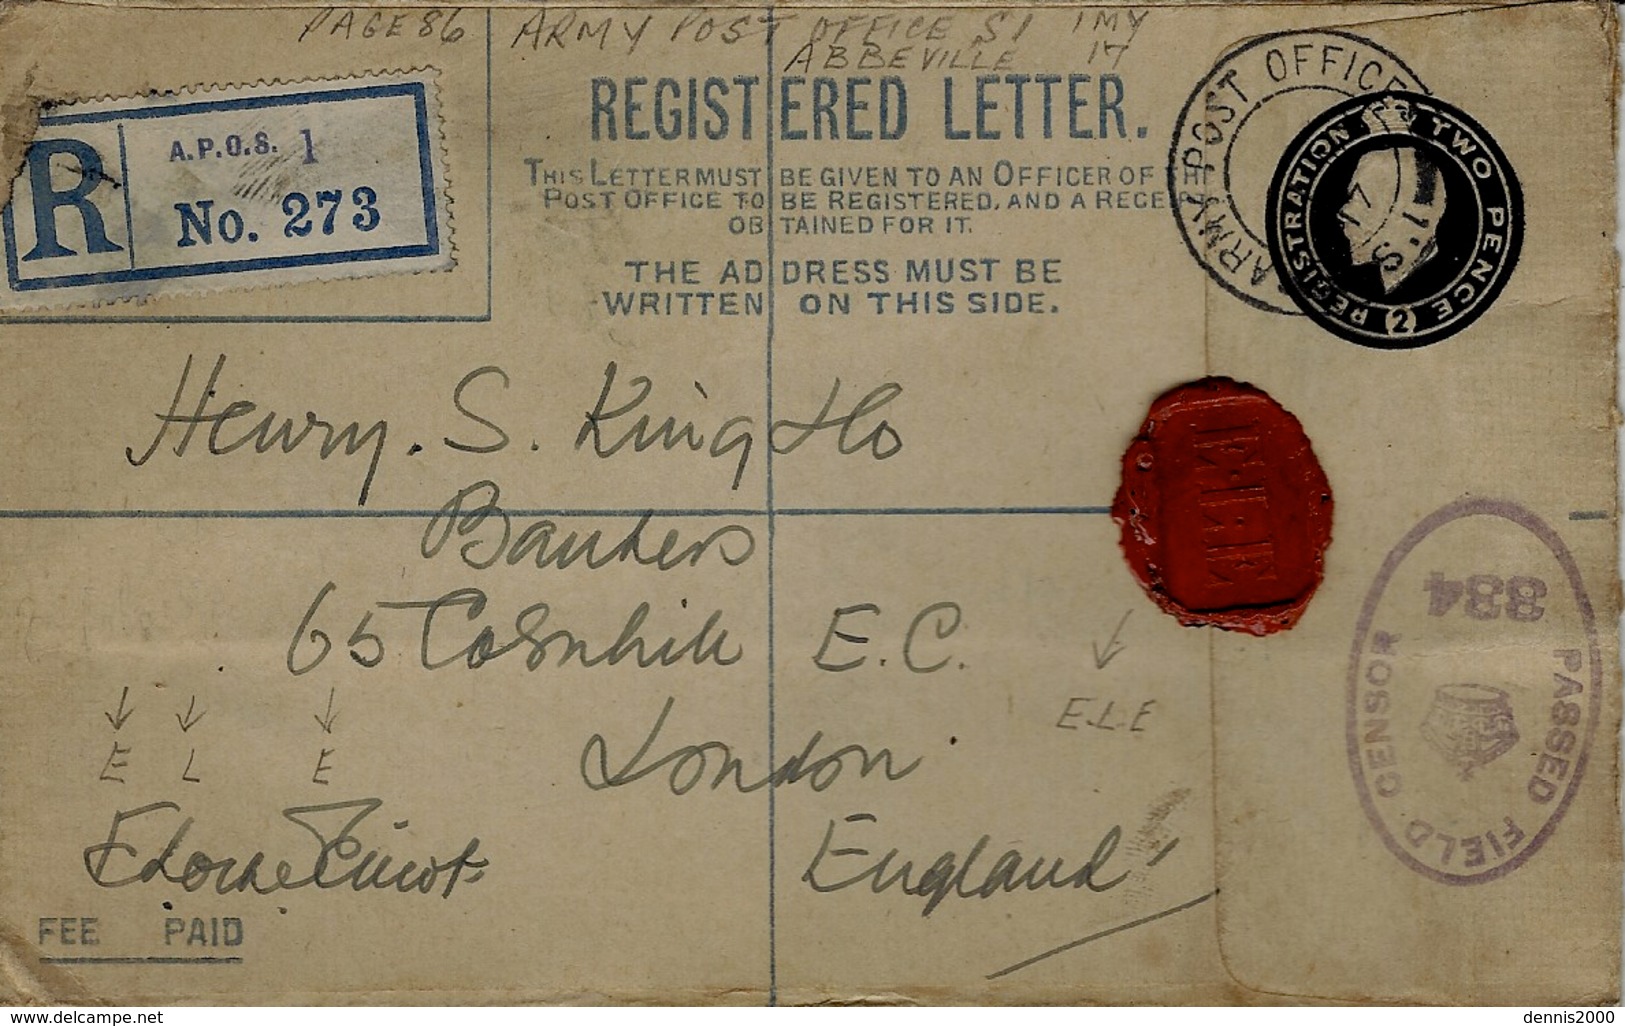 PAGE 86 ARMY POST OFFICE S1 1 MY
ABBEVILLE 17
R
A.P.O.S. 1
No. 273
REGISTERED LETTER.
THIS LETTER MUST BE GIVEN TO AN OFFICER OF THE
POST OFFICE TO BE REGISTERED, AND A RECEIPT
OBTAINED FOR IT.
THE ADDRESS MUST BE
WRITTEN ON THIS SIDE.
ARMY POST OFFICE
17
S.1
REGISTRATION TWO PENCE (2)
Henry. S. King & Co
Bankers
65 Cornhill E.C.
London
England
E L E
E.L.E
E.L.E
PASSED FIELD CENSOR
884
FEE PAID
www.delcampe.net
dennis2000